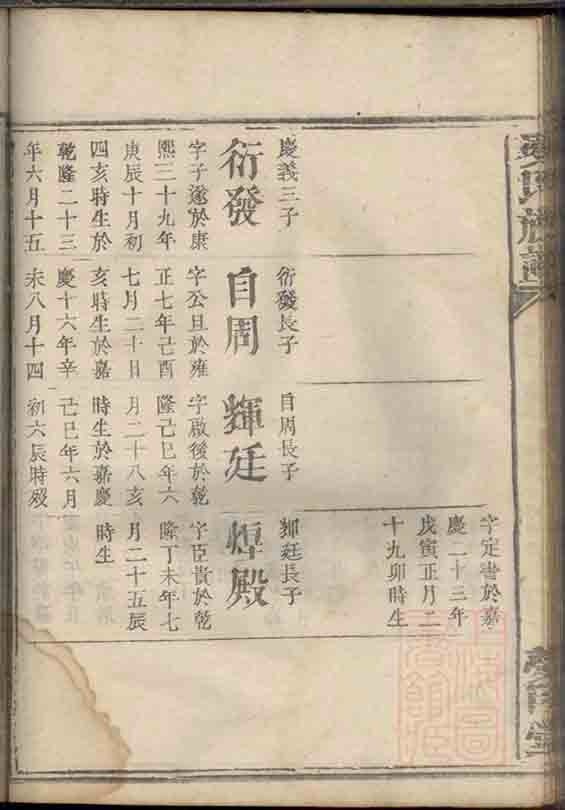 字定書於嘉
慶二十三年
戊寅正月二
十九卯時生
慶義三子
衍發
字子遂於康
熙三十九年
庚辰十月初
四亥時生於
乾隆二十三
年六月十五
衍發長子
自周
字公旦於雍
正七年己酉
七月二十日
亥時生於嘉
慶十六年辛
未八月十四
自周長子
輝廷
字啟後於乾
隆己巳年六
月二十八亥
時生於嘉慶
己巳年六月
初六辰時歿
輝廷長子
煌殿
字臣貴於乾
隆丁未年七
月二十五辰
時生